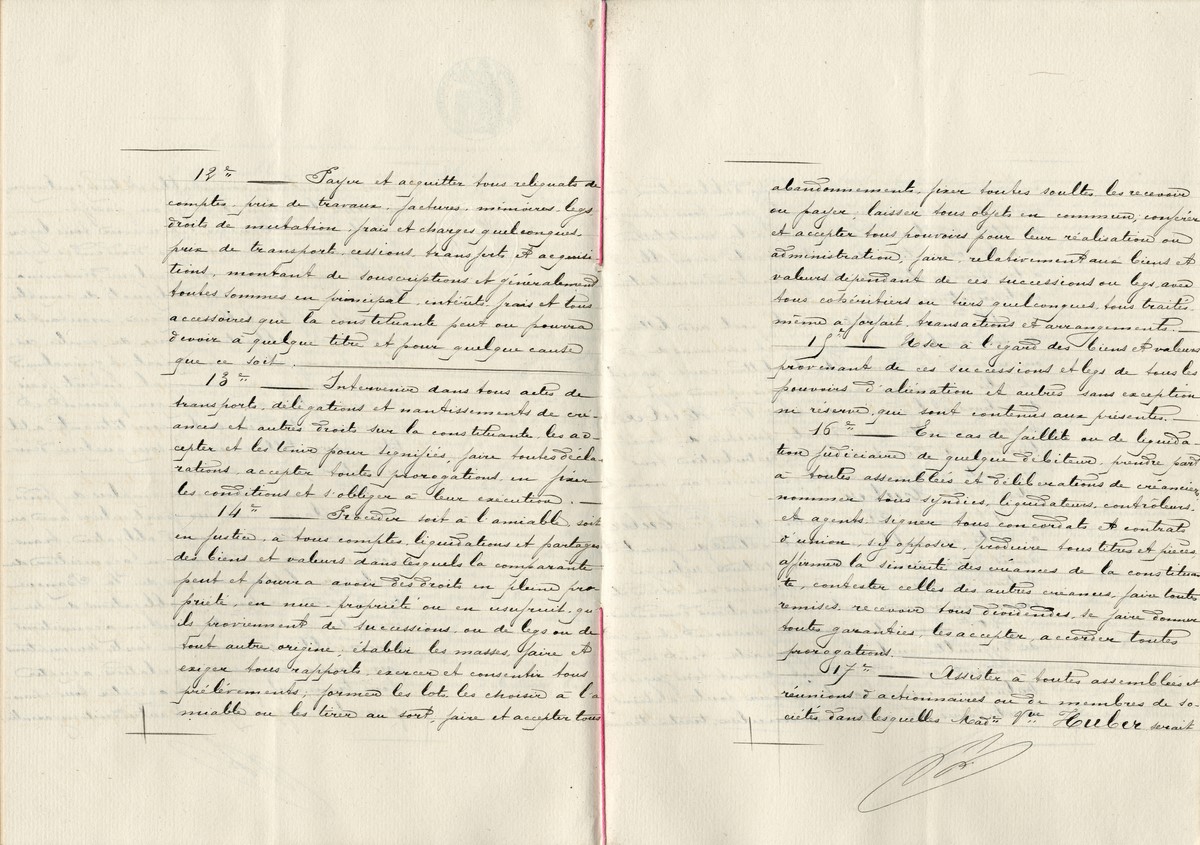 12° ___ Payer et acquitter tous reliquats de
comptes, prix de travaux, factures, mémoires, legs,
droits de mutation, frais et charges quelconques,
prix de transports, cessions, transports et acquisi
tions, montant de souscriptions et généralement
toutes sommes en principal, intérêts, frais et tous
accessoires que la constituante peut ou pourra
devoir à quelque titre et pour quelque cause
que ce soit.
13° ___ Intervenir dans tous actes de
transports, délégations et nantissements de cré-
ances et autres droits sur la constituante, les ac-
cepter et les tenir pour signifiés, faire toutes décla-
rations, accepter toutes prorogations, en fixer
les conditions et s'obliger à leur exécution. _
14° ___ Procéder soit à l'amiable soit
en justice, à tous comptes, liquidations et partages
des biens et valeurs dans lesquels la comparante
peut et pourra avoir des droits en pleine pro
priété, en nue-propriété ou en usufruit, qu'
ils proviennent de successions, ou de legs ou de
tout autre origine; établir les masses, faire et
exiger tous rapports, exercer et consentir tous
prélèvements; former les lots, les choisir à l'a
miable ou les tirer au sort, faire et accepter tous
abandonnements, fixer toutes soultes les recevoir
ou payer; laisser tous objets en commun, conférer
et accepter tous pouvoirs pour leur réalisation ou
administration; faire, relativement aux biens et
valeurs dépendant de ces successions ou legs, avec
tous cohéritiers ou tiers quelconques, tous traités
même à forfait, transactions et arrangements. _
15° ___ User à l'égard des biens et valeurs
provenant de ces successions et legs de tous les
pouvoirs d'aliénation et autres sans exception
ni réserve, que sont contenus aux présentes.
16° ___ En cas de faillite ou de liquida
tion judiciaire de quelque débiteur, prendre part
à toutes assemblées et délibérations de créanciers,
nommer tous syndics, liquidateurs, contrôleurs,
et agents, signer tous concordats et contrats
d'union, s'y opposer, produire tous titres et pièces,
affirmer la sincérité des créances de la constituan
te, contester celles des autres créances, faire toutes
remises, recevoir tous dividendes, se faire donner
toutes garanties, les accepter, accorder toutes
prorogations.
17° ___ Assister à toutes assemblées et
réunions d'actionnaires ou de membres de so-
ciétés dans lesquelles Mad° Vve Huber serait